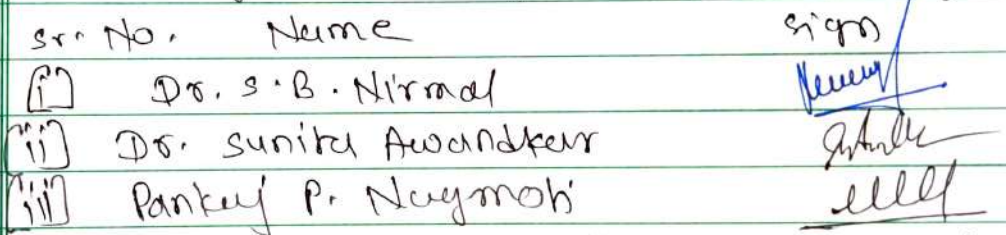 Sr. No. Name Sign
i] Dr. S. B. Nirmal
ii] Dr. Sunita Awandkar
iii] Pankaj P.